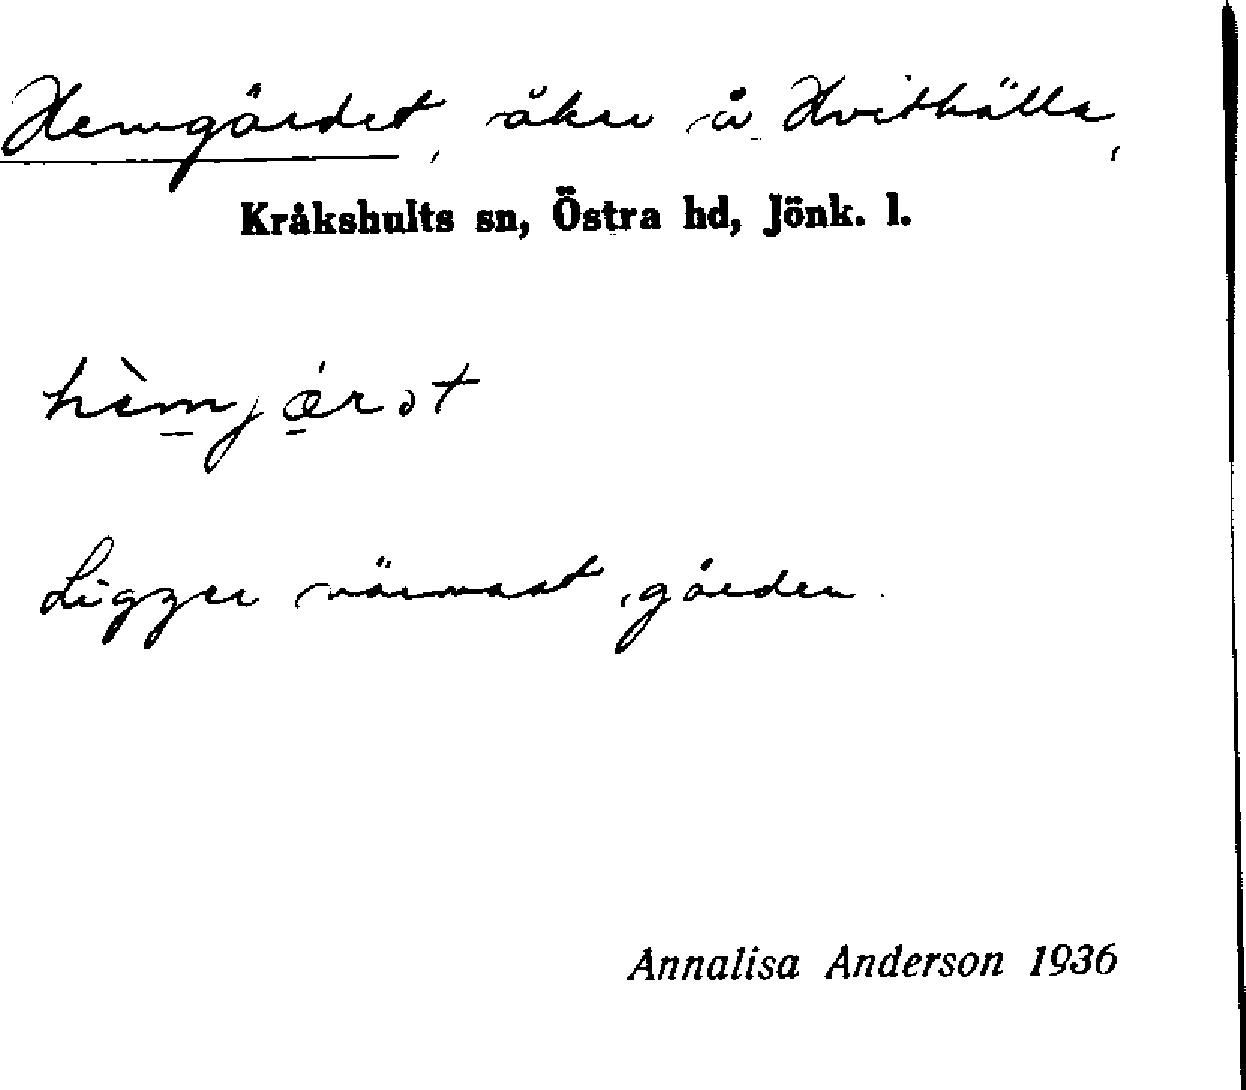 Hemgärdet, åker å Hvithälla,
Kråkshults sn, Östra hd, Jönk. l.
hèmjǽrət
Ligger närmast gården.
Annalisa Anderson 1936